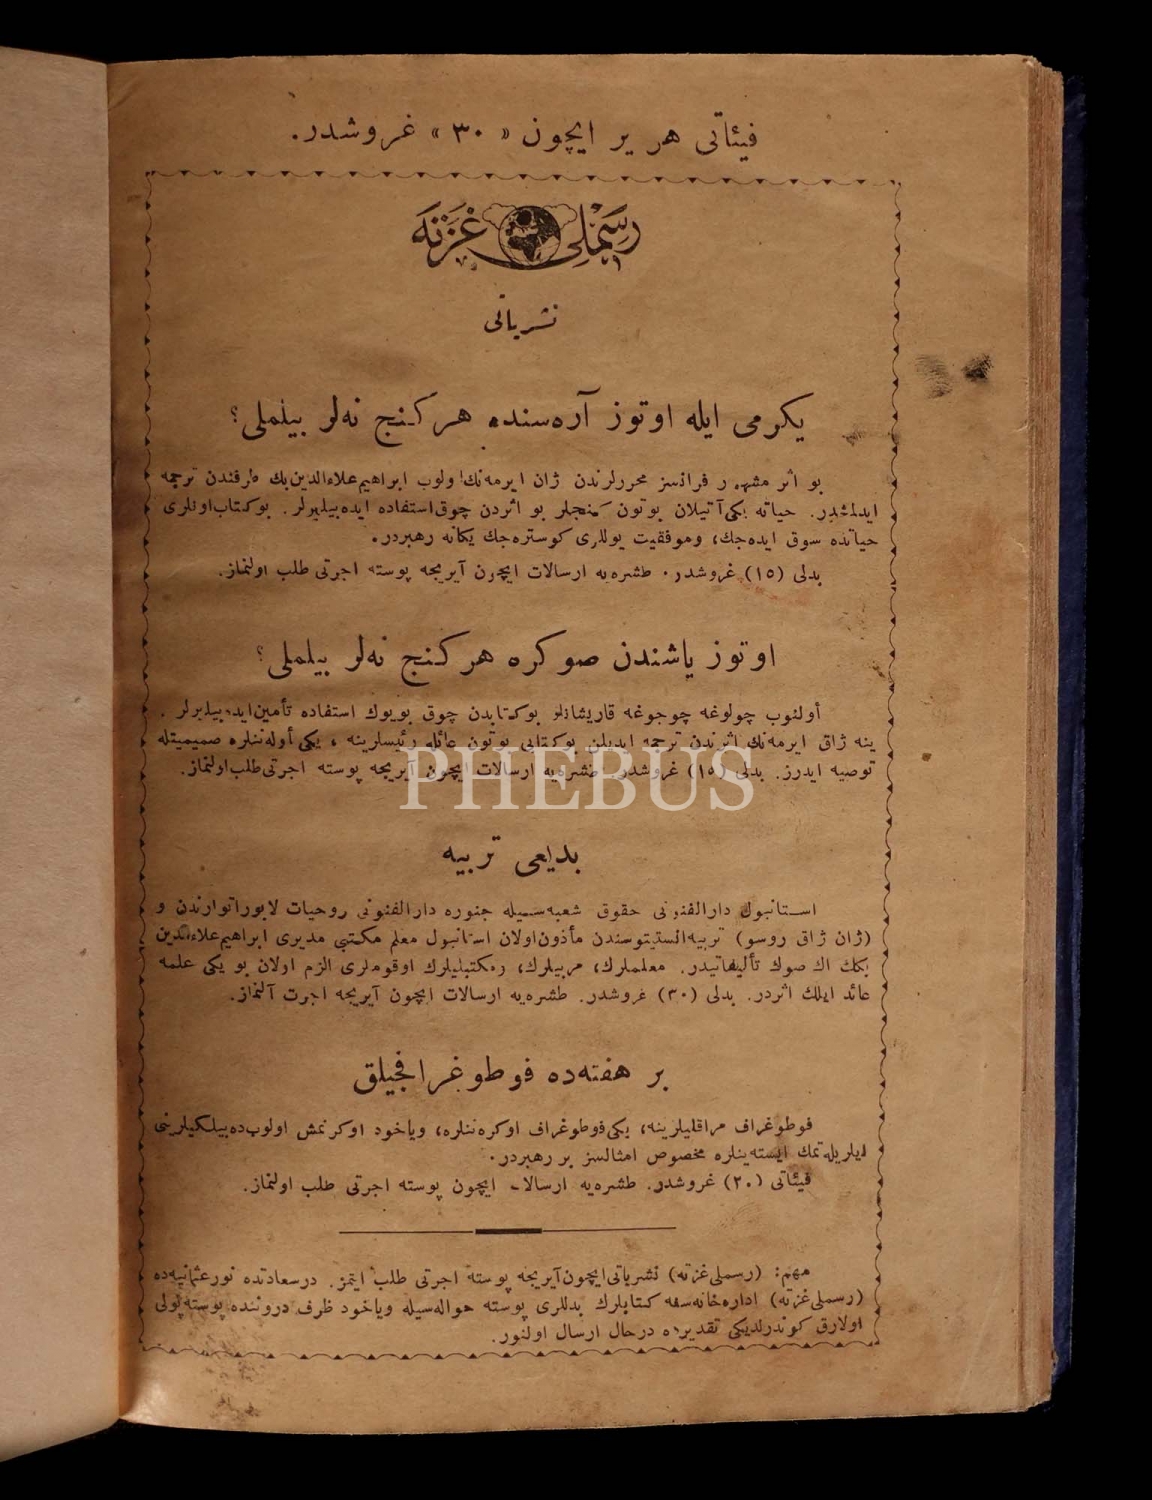 فيئاتی هر ير ايچون « ٣٠ » غروشدر.
رسملی غزته
نشرياتی
يكرمی ايله اوتوز آره‌سنده هر كنج نه‌لر بيلملی؟
بو اثر مشهور فرانسز محررلرندن ژان ايرمه‌نك اولوب ابراهيم علاءالدين بك طرفندن ترجمه
ايدلمشدر. حياته يكی آتيلان بوتون كنجلر بو اثردن چوق استفاده ايده‌بيليرلر. بو كتاب اونلری
حياتده سوق ايده‌جك، وموفقيت يوللری كوستره‌جك يكانه رهبردر.
بدلی (١٥) غروشدر. طشره‌يه ارسالات ايچون آيريجه پوسته اجرتی طلب اولنماز.
اوتوز ياشندن صوكره هر كنج نه‌لر بيلملی؟
أولنوب چولوغه چوجوغه قاريشانلر بوكتابدن چوق بويوك استفاده تأمين ايده‌بيليرلر.
ينه ژاق ايرمه‌نك اثرندن ترجمه ايديلن بوكتابی بوتون عائله رئيسلرينه، يكی أوله‌ننلره صميميتله
توصيه ايدرز. بدلی (١٥) غروشدر. طشره‌يه ارسالات ايچون آيريجه پوسته اجرتی طلب اولنماز.
PHEBUS
بديعی تربيه
استانبول دارالفنونی حقوق شعبه‌سيله جنوره دارالفنونی روحيات لابوراتوارندن و
(ژان ژاق روسو) تربيه انستيتوسندن مأذون اولان استانبول معلم مكتبی مديری ابراهيم علاءالدين
بكك اك صوك تأليفاتيدر. معلملرك، مربيلرك، ومكتبليلرك اوقوملری الزم اولان بو يكی علمه
عائد ايلك اثردر. بدلی (٣٠) غروشدر. طشره‌يه ارسالات ايچون آيريجه اجرت آلنماز.
بر هفته‌ده فوطوغرافجيلق
فوطوغراف مراقليلرينه، يكی فوطوغراف اوكره‌ننلره، وياخود اوكرنمش اولوب‌ده بيلكيلرينی
ايلريله‌تمك ايسته‌ينلره مخصوص امثالسز بر رهبردر.
فيئاتی (٢٠) غروشدر. طشره‌يه ارسالات ايچون پوسته اجرتی طلب اولنماز.
مهم: (رسملی غزته) نشرياتی ايچون آيريجه پوسته اجرتی طلب ايتمز. درسعادتده نورعثمانيه‌ده
(رسملی غزته) اداره‌خانه‌سنه كتابلرك بدللری پوسته حواله‌سيله وياخود ظرف دروننده پوسته پولی
اولارق كوندرلديكی تقديرده درحال ارسال اولنور.